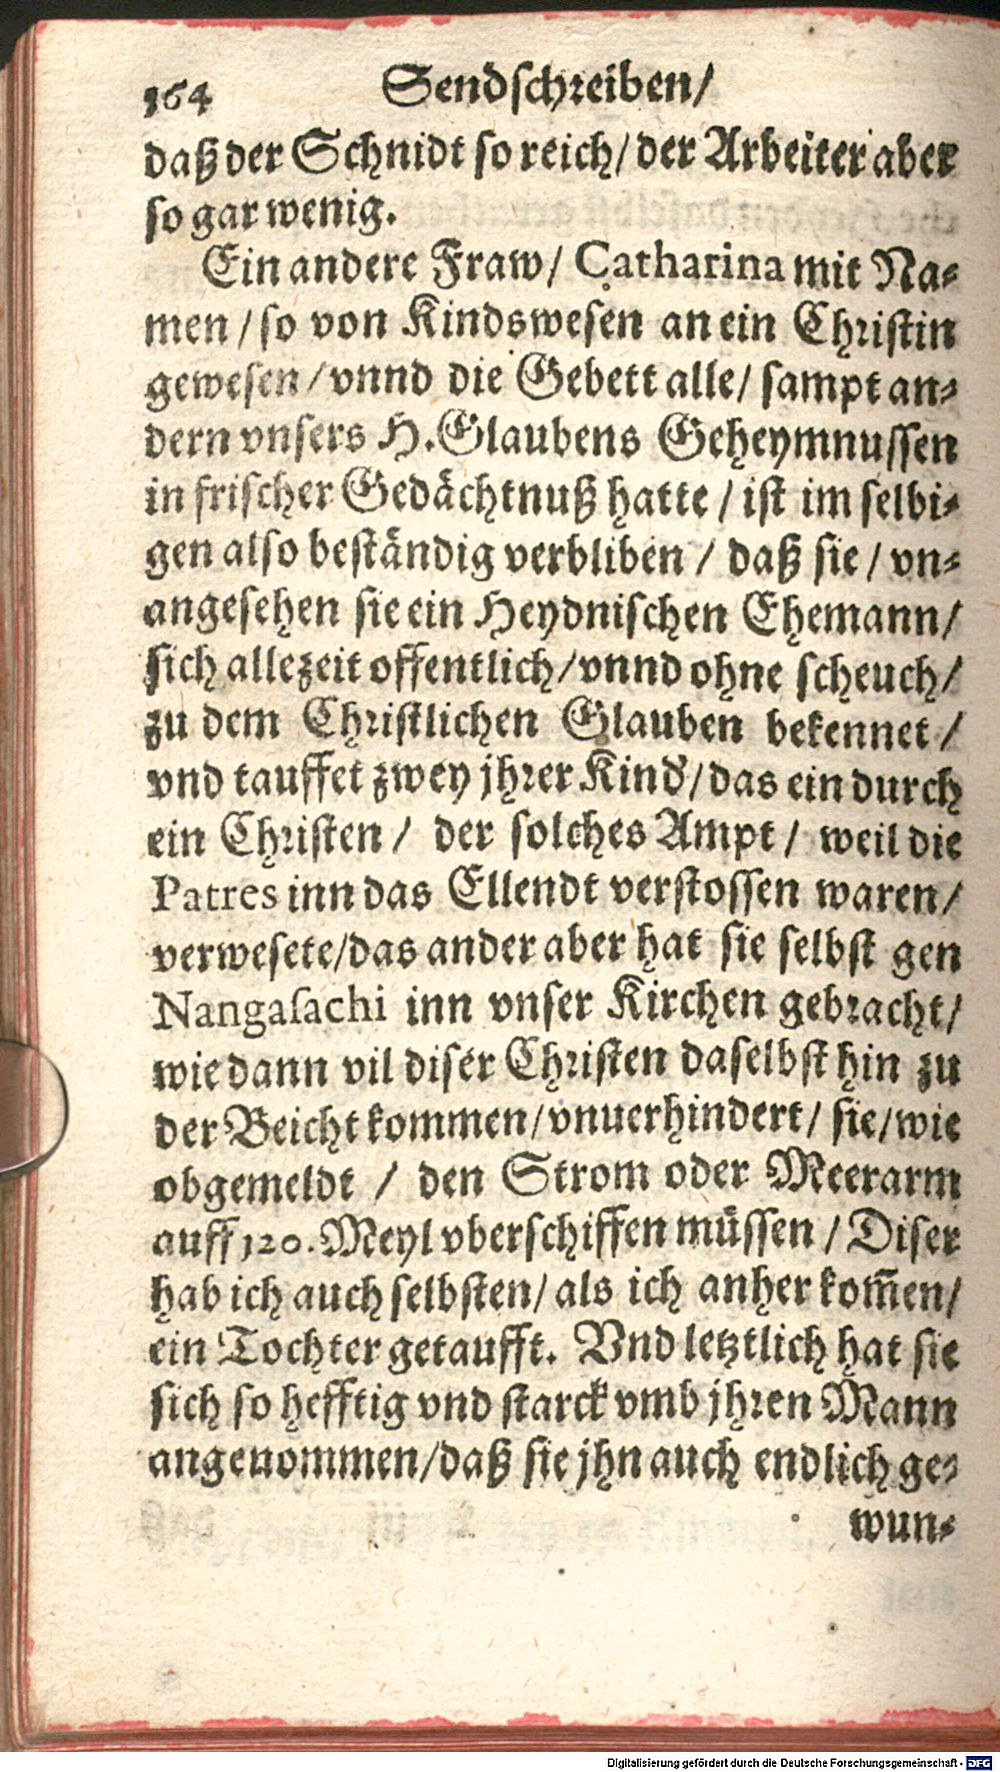 164 Sendschreiben/
daß der Schnidt so reich/ der Arbeiter aber
so gar wenig.
Ein andere Fraw/ Catharina mit Na-
men / so von Kindswesen an ein Christin
gewesen / vnnd die Gebett alle/ sampt an-
dern vnsers H. Glaubens Geheymnussen
in frischer Gedächtnuß hatte / ist im selbi-
gen also beständig verbliben / daß sie / vn-
angesehen sie ein Heydnischen Ehemann/
sich allezeit offentlich/ vnnd ohne scheuch/
zu dem Christlichen Glauben bekennet /
vnd tauffet zwey jhrer Kind/ das ein durch
ein Christen / der solches Ampt / weil die
Patres inn das Ellendt verstossen waren/
verwesete/ das ander aber hat sie selbst gen
Nangasachi inn vnser Kirchen gebracht/
wie dann vil diser Christen daselbst hin zu
der Beicht kommen/ vnuerhindert/ sie/ wie
obgemeldt / den Strom oder Meerarm
auff 120. Meyl vberschiffen müssen / Diser
hab ich auch selbsten/ als ich anher kom̄en/
ein Tochter getaufft. Vnd letztlich hat sie
sich so hefftig vnd starck vmb jhren Mann
angenommen/ daß sie jhn auch endlich ge-
wun-
Digitalisierung gefördert durch die Deutsche Forschungsgemeinschaft - DFG